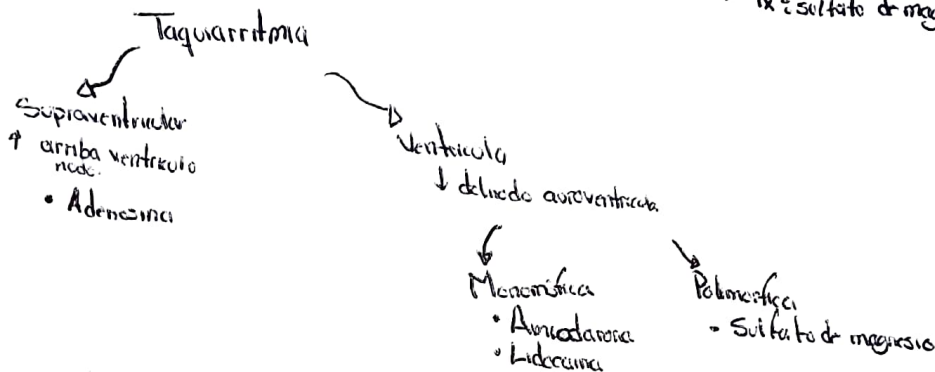 Tx: sulfato de mag
Taquiarritmia
Supraventricular
↑ arriba ventriculo
nodo.
• Adenosina
Ventricula
↓ del nodo auroventricula.
Monomórfica
• Amiodarona
• Lidocaina
Polimorfica
- Sulfato de magnesio